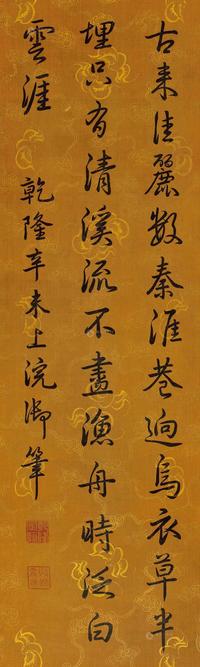 古来佳麗數秦淮巷迥烏衣草半
埋只有清溪流不盡漁舟時泛白
雲涯
乾隆辛未上浣御筆